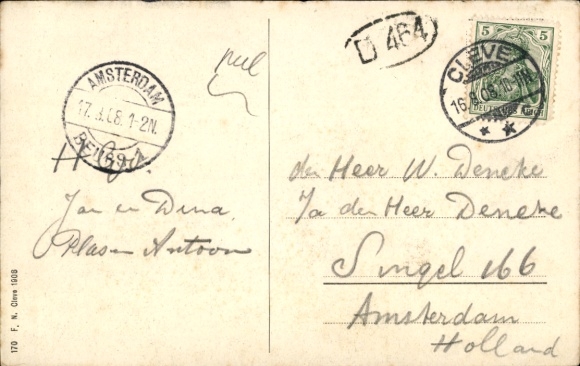 D 464
5
5
CLEVE
16.9.08.10-11N.
DEUTSCHES REICH
AMSTERDAM
17.9.08.1-2N.
Jan en Dina.
Plasen Antoon
den Heer W. Deneke
Ja den Heer Deneke
Singel 166
Amsterdam
Holland
170 F. N. Cleve 1906